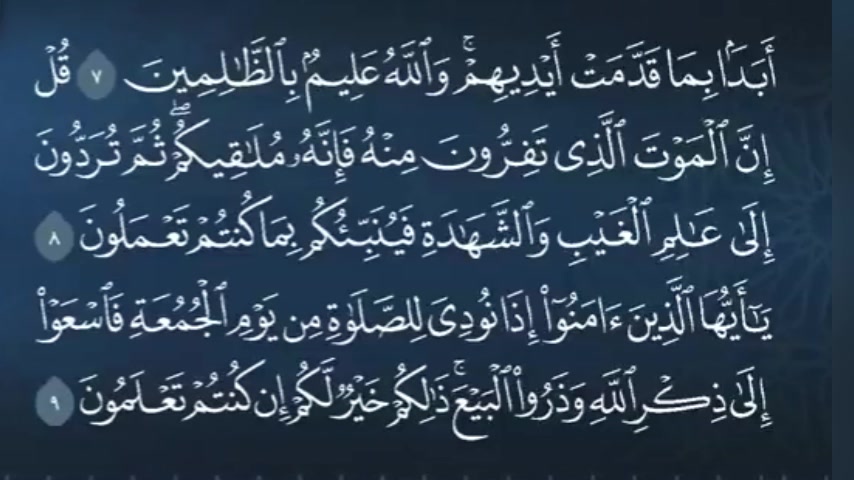 أَبَدَۢا بِمَا قَدَّمَتۡ أَيۡدِيهِمۡۚ وَٱللَّهُ عَلِيمُۢ بِٱلظَّٰلِمِينَ ٧ قُلۡ
إِنَّ ٱلۡمَوۡتَ ٱلَّذِى تَفِرُّونَ مِنۡهُ فَإِنَّهُۥ مُلَٰقِيكُمۡۖ ثُمَّ تُرَدُّونَ
إِلَىٰ عَٰلِمِ ٱلۡغَيۡبِ وَٱلشَّهَٰدَةِ فَيُنَبِّئُكُم بِمَا كُنتُمۡ تَعۡمَلُونَ ٨
يَٰٓأَيُّهَا ٱلَّذِينَ ءَامَنُوٓاْ إِذَا نُودِىَ لِلصَّلَوٰةِ مِن يَوۡمِ ٱلۡجُمُعَةِ فَٱسۡعَوۡاْ
إِلَىٰ ذِكۡرِ ٱللَّهِ وَذَرُواْ ٱلۡبَيۡعَۚ ذَٰلِكُمۡ خَيۡرٞ لَّكُمۡ إِن كُنتُمۡ تَعۡلَمُونَ ٩